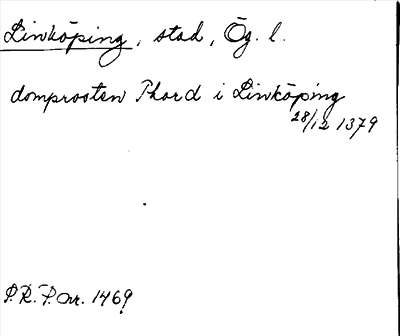 Linköping, stad, Ög. l.
domprosten Thord i Linköping
28/12 1379
P.R.P. nr. 1469